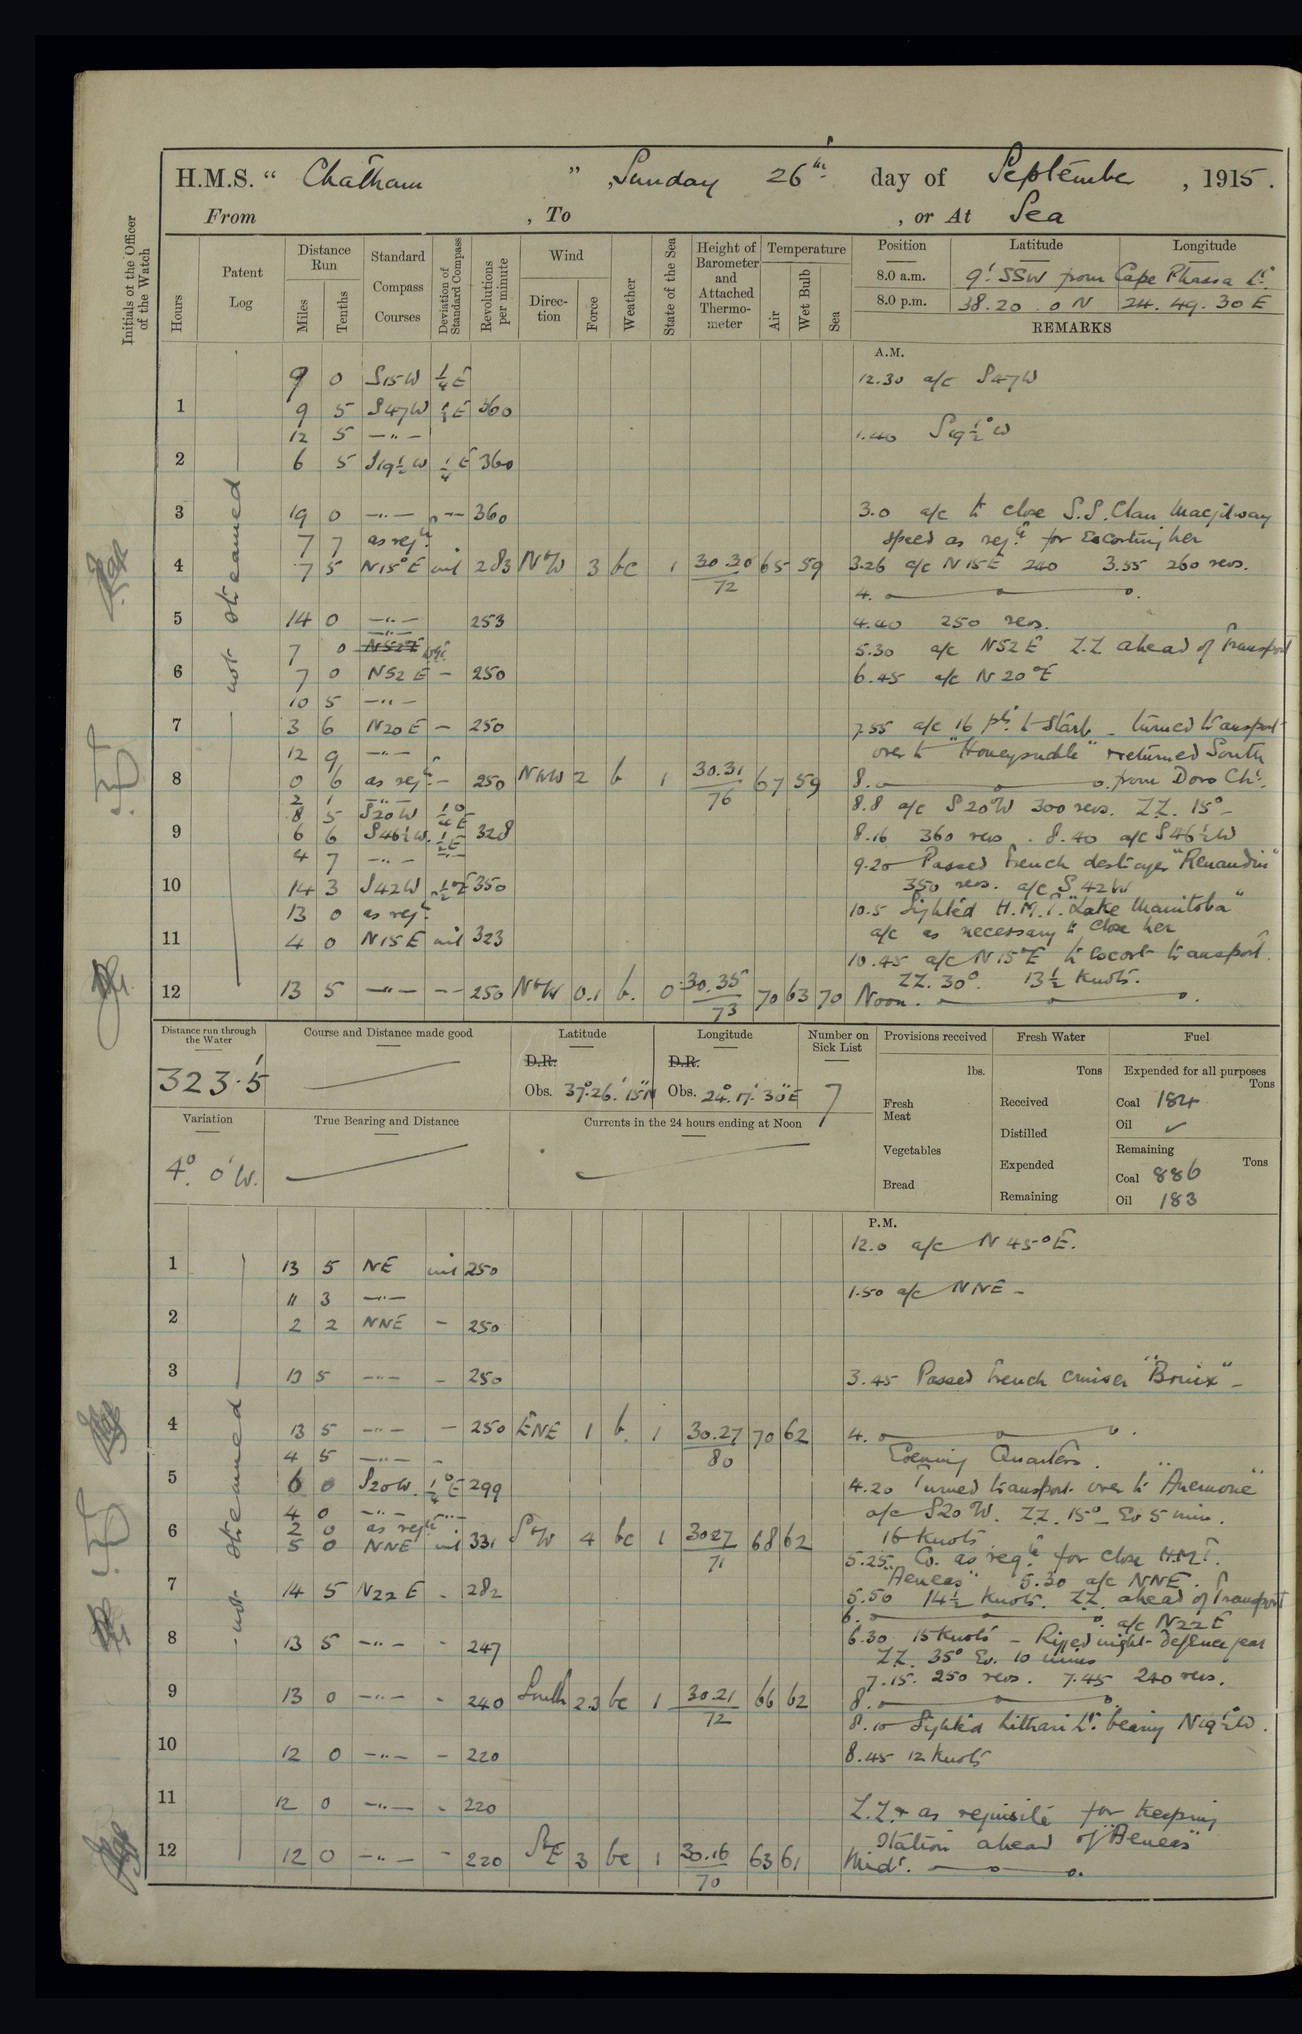 H.M.S. "Chatham", Sunday 26th day of September, 1915.
From , To , or At Sea
Initials of the Officer of the Watch
Hours
Patent Log
Distance Run
Miles
Tenths
Standard Compass Courses
Deviation of Standard Compass
Revolutions per minute
Wind
Direction
Force
Weather
State of the Sea
Height of Barometer and Attached Thermometer
Temperature
Air
Wet Bulb
Sea
Position Latitude Longitude
8.0 a.m. 9' SSW from Cape Phassa Lt.
8.0 p.m. 38.20.0 N 24.49.30 E
REMARKS
A.M.
not streamed
9 0 S15W ¼E
12.30 a/c S47W
1 9 5 S47W ¼E 360
12 5 —"—
1.40 S19½°W
2 6 5 S19½W ¼E 360
3 19 0 —"— -- 360
3.0 a/c to close S.S. Clan Macgilvray
7 7 as reqd.
speed as reqd. for escorting her
4 7 5 N15°E nil 283 NbW 3 bc 1 30.30/72 65 59
3.26 a/c N15E 240 3.55 260 revs.
4.
5 14 0 —"— 253
4.40 250 revs.
7 0 N52E
5.30 a/c N52E Z.Z ahead of Transport
6 7 0 N52E - 250
6.45 a/c N20°E
10 5 —"—
7 3 6 N20E - 250
7.55 a/c 16 pts to Starb - turned transport
12 9 —"—
over to "Honeysuckle" & returned South
8 0 6 as reqd. - 250 NNW 2 b 1 30.31/76 67 59
8. from Doro Chl.
2 1 —"—
8.8 a/c S20°W 300 revs. ZZ. 15° -
8 5 S20W ¼°E
9 6 6 S46½W. ½E 328
8.16 360 revs. 8.40 a/c S46½W
4 7 —"—
9.20 Passed French destroyer "Renaudin"
10 14 3 S42W ½°E 350
350 revs. a/c S42W
13 0 as reqd.
10.5 Sighted H.M.T. "Lake Manitoba"
a/c as necessary to close her
11 4 0 N15E nil 323
10.45 a/c N15°E to escort transport.
ZZ. 30°. 13½ knots.
12 13 5 —"— -- 250 NbW 0.1 b. 0 30.35/73 70 63 70
Noon.
Distance run through the Water
323.5
Course and Distance made good
Latitude
D.R.
Obs. 37°.26'.15"N
Longitude
D.R.
Obs. 24°.17'.30"E
Number on Sick List
7
Provisions received
lbs.
Fresh Meat
Vegetables
Bread
Fresh Water
Tons
Received
Distilled
Expended
Remaining
Fuel
Expended for all purposes
Tons
Coal 184
Oil ✓
Remaining
Tons
Coal 886
Oil 183
Variation
4°. 0'W.
True Bearing and Distance
Currents in the 24 hours ending at Noon
P.M.
not streamed
12.0 a/c N45°E.
1 13 5 NE nil 250
11 3 —"—
1.50 a/c NNE -
2 2 2 NNE - 250
3 13 5 —"— - 250
3.45 Passed French cruiser "Bruix" -
4 13 5 —"— - 250 ENE 1 b. 1 30.27/80 70 62
4.
4 5 —"— -
Evening Quarters.
5 6 0 S20W. ¼°E 299
4.20 Turned transport over to "Anemone"
4 0 —"— —"—
a/c S20°W. ZZ. 15° - Ev 5 min.
2 0 as reqd.
16 knots
6 5 0 NNE nil 331 SbW 4 bc 1 30.27/71 68 62
5.25. Co. as reqd. for close H.M.T.
"Aeneas" 5.30 a/c NNE.
7 14 5 N22E - 282
5.50 14½ knots. ZZ. ahead of Transport
6. a/c N22E
8 13 5 —"— - 247
6.30 15 knots - Rigged night defence gear
ZZ. 35° Ev. 10 mins
7.15. 250 revs. 7.45 240 revs.
9 13 0 —"— - 240 South 2.3 bc 1 30.21/72 66 62
8.
8.10 Sighted Lithari Lt. bearing N19½°W.
10 12 0 —"— - 220
8.45 12 knots
11 12 0 —"— - 220
Z.Z. & as requisite for keeping
station ahead of "Aeneas"
12 12 0 —"— - 220 SbE 3 bc 1 30.16/70 63 61
Midt.